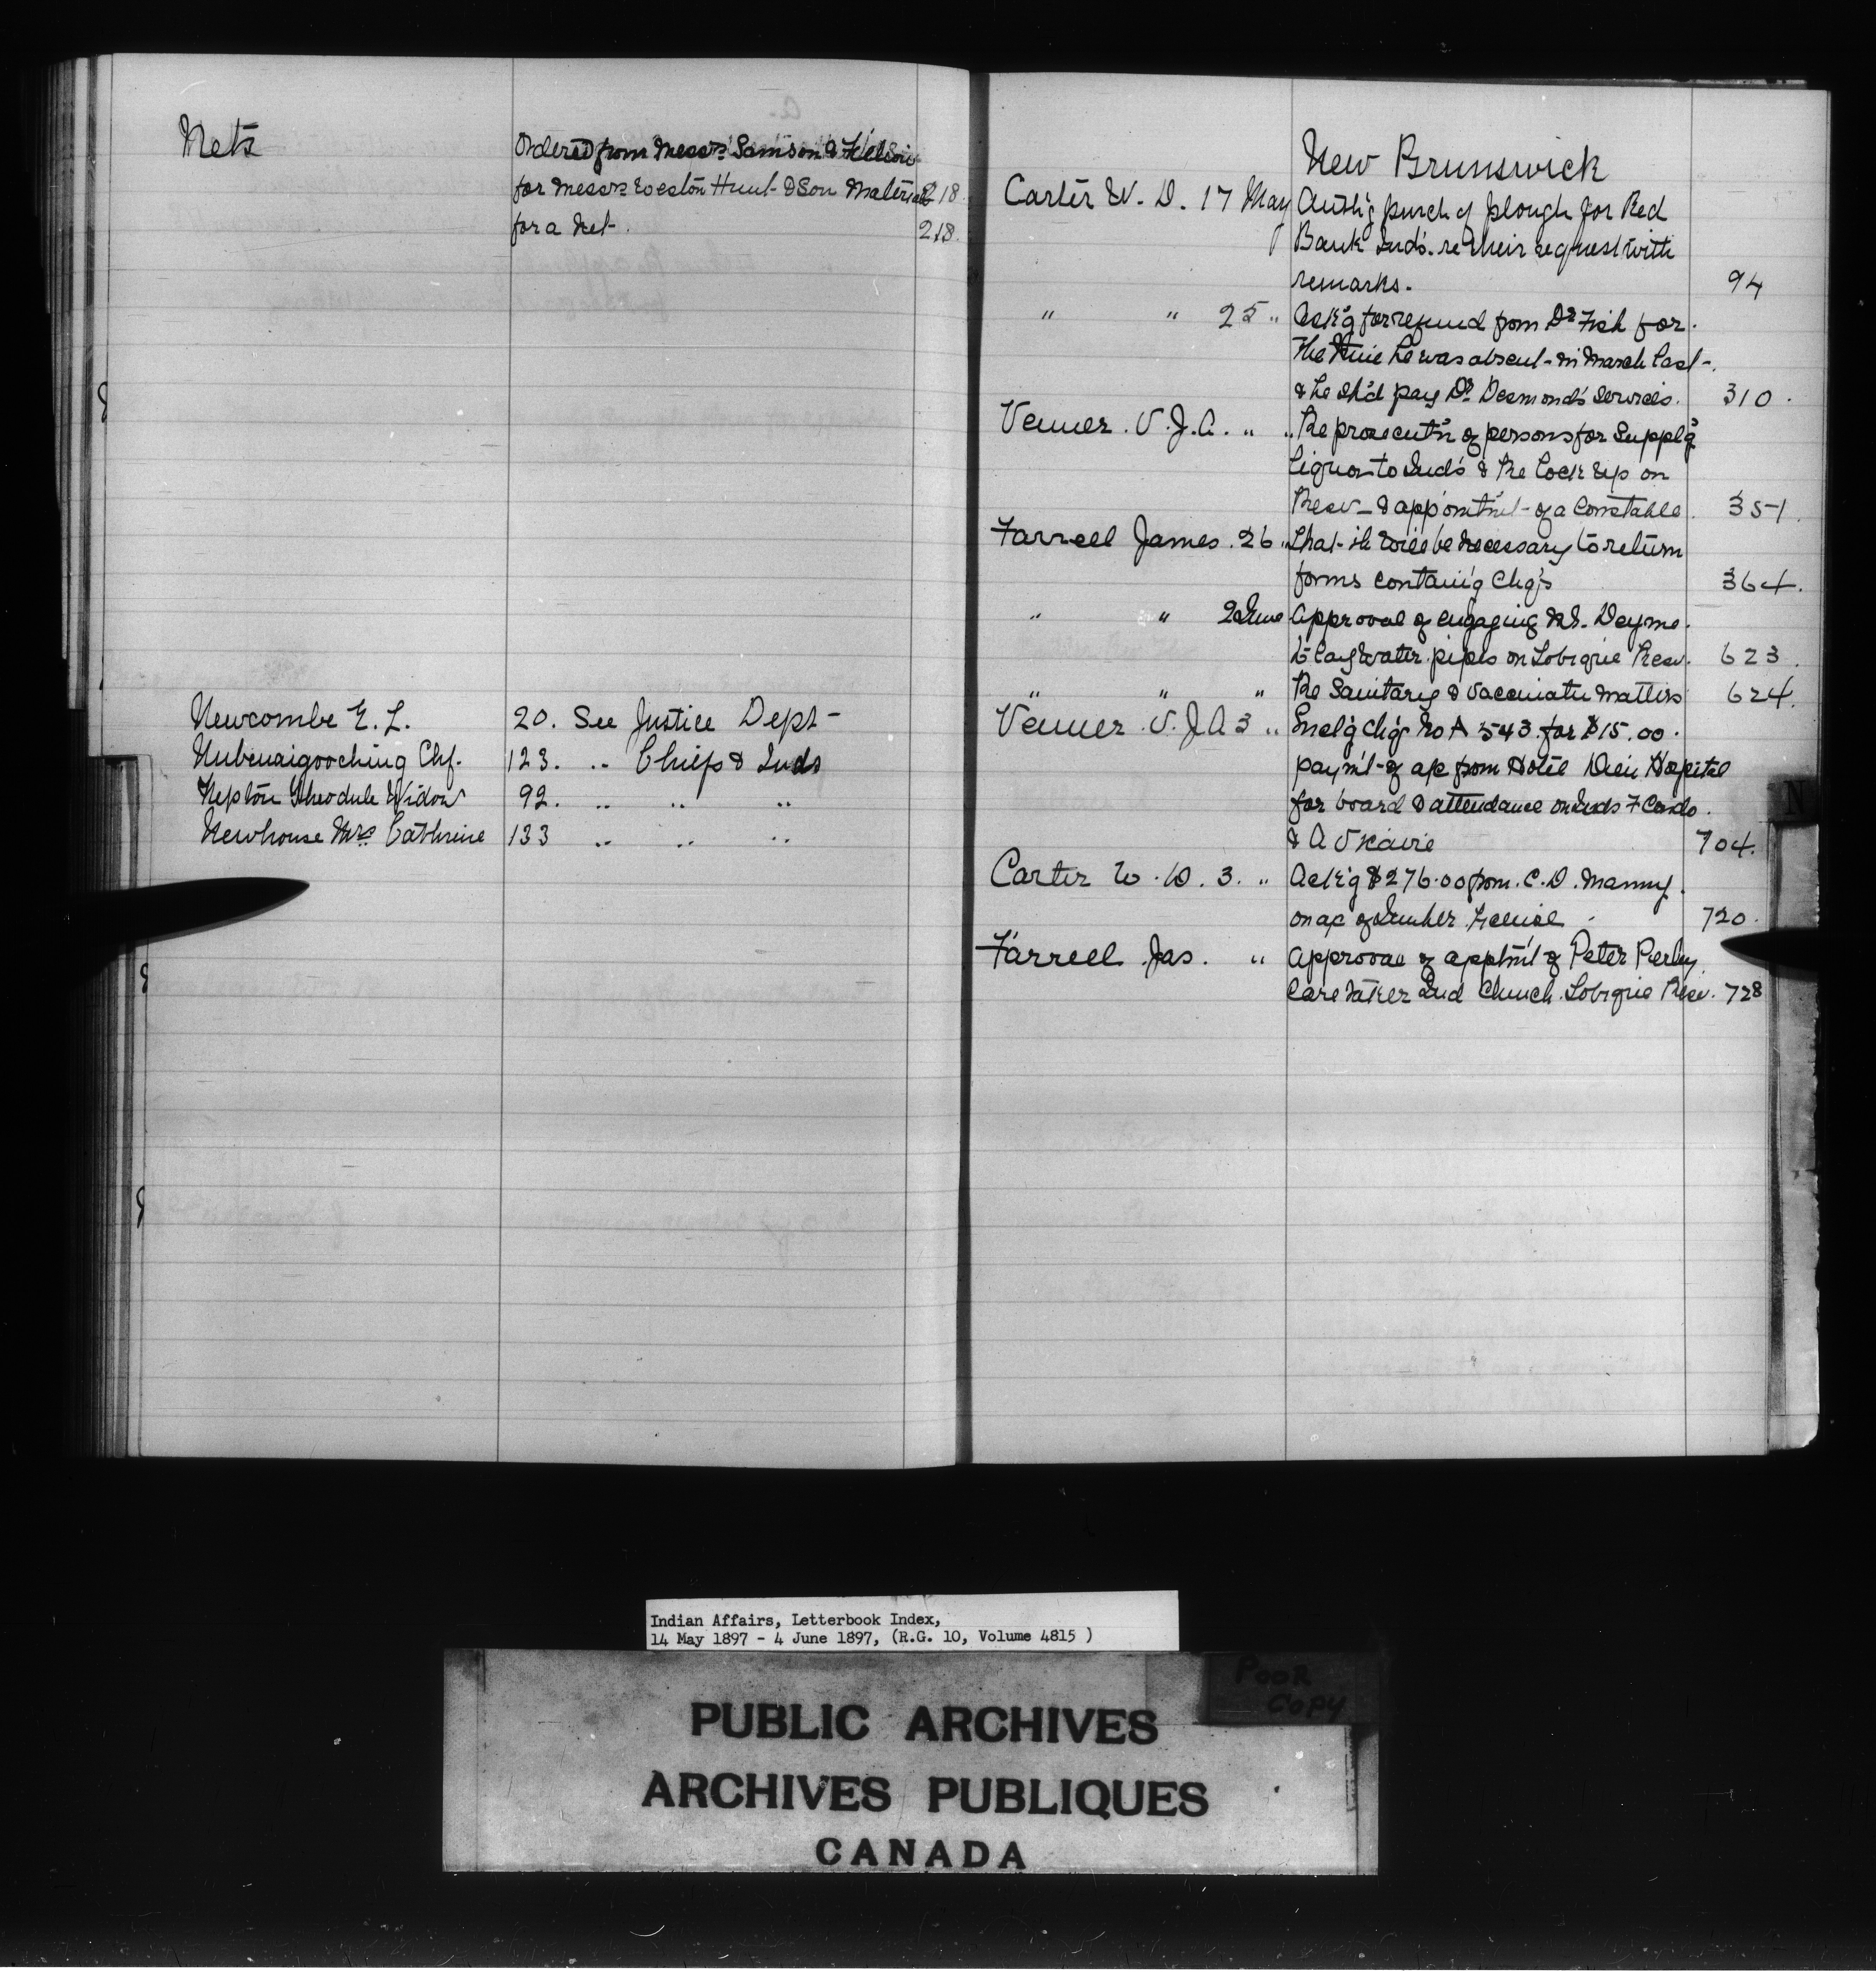 Nets
Ordered from Messrs Samson & Filion
for Messrs Weston Hunt & Son Material 218
for a net. 218.
Newcombe E. L. 20. See Justice Dept
Nubenaigooching Chf. 123. " Chiefs & Inds
Nepton Theodule Widow 92. " " "
Newhouse Mrs Cathrine 133 " " "
New Brunswick
Carter W. D. 17 May Auth'g purch of plough for Red
Bank Ind's. re their request with
remarks. 94
" " 25 " Ask'g for refund from Dr Fish for
the time he was absent in March last
& he sh'd pay Dr Desmond's services. 310.
Venner V. J. A. " " Re prosecut'n of persons for Suppl'g
liquor to Ind's & Re Lock up on
Resv & appointm't of a Constable. 351.
Farrell James. 26 " That it will be necessary to return
forms contain'g Chq's 364.
" " 2 June Approval of engaging
to lay water pipes on Tobique Resv. 623.
" " " Re Sanitary & Vaccinatn matters 624.
Venner V. J. A 3 " Encl'g Chq No A 543 for $15.00.
paym't of a/c from Hotel Dieu Hospital
for board & attendance on Inds F Condo
& A Vicaire 704.
Carter W. D. 3. " Ack'g $276.00 from C. D. Manny
on a/c of Timber License 720.
Farrell Jas. " Approval of apptm't of Peter Perley
Caretaker Ind Church Tobique Resv. 728
N
Indian Affairs, Letterbook Index,
14 May 1897 - 4 June 1897, (R.G. 10, Volume 4815 )
POOR
COPY
PUBLIC ARCHIVES
ARCHIVES PUBLIQUES
CANADA